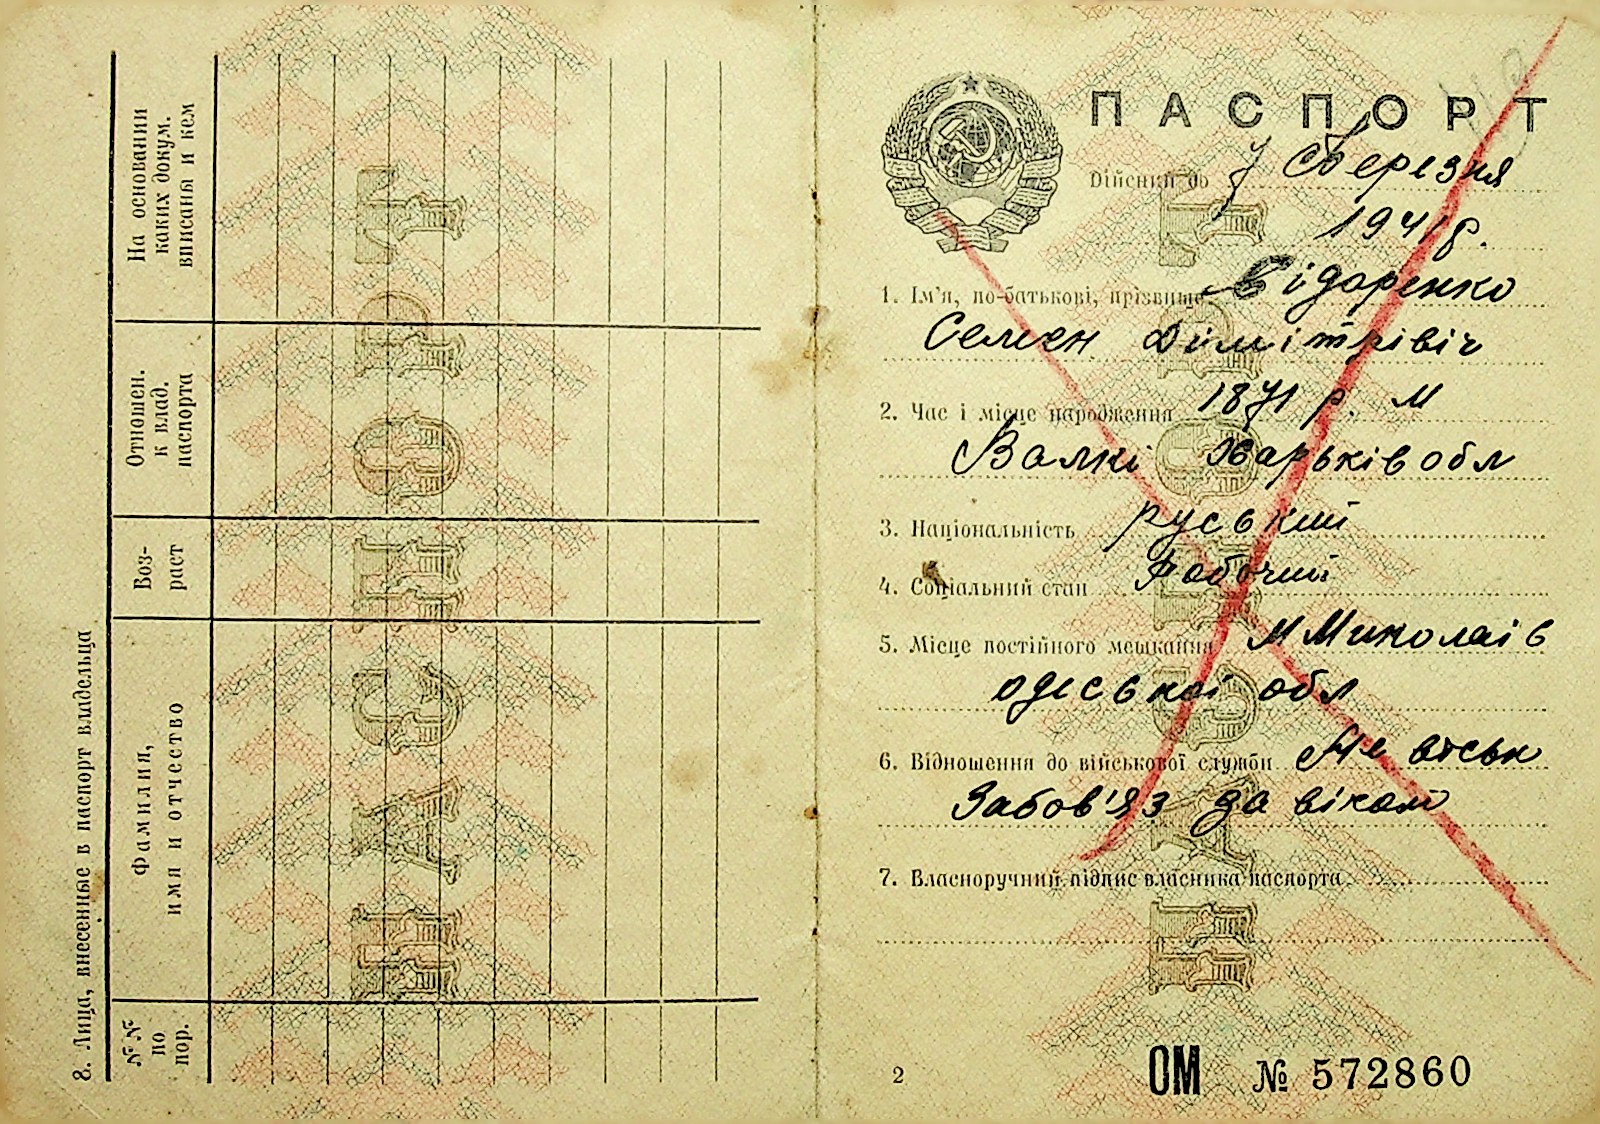 8. Лица, внесенные в паспорт владельца
№№ по пор.
Фамилия, имя и отчество
Воз- раст
Отношен. к влад. паспорта
На основании каких докум. вписаны и кем
ПАСПОРТ
Дійсний до 7 Березня
1941 р.
1. Ім'я, по-батькові, прізвище
Семен Дімітрівіч
2. Час і місце народження 1871 р. М
Валкі Харьків обл
3. Національність руський
4. Соціальний стан Рабочий
5. Місце постійного мешкання М Миколаів
одеськоі обл
6. Відношення до військової служби Не
Забов'яз за віком
7. Власноручний підпис власника паспорта
2
ОМ № 572860
ПАСПОРТ
ПАСПОРТ